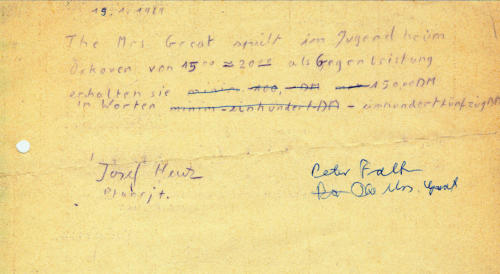 19.1.1989
The Mrs Great spielt im Jugendheim
Dekoven von 15⁰⁰ - 20⁰⁰ als Gegenleistung
erhalten sie minim. 100,-DM 150,00DM
in Worten minim-einhundert DM - einhundertfünfzig DM
Josef
Peter Falk
Mrs. Great